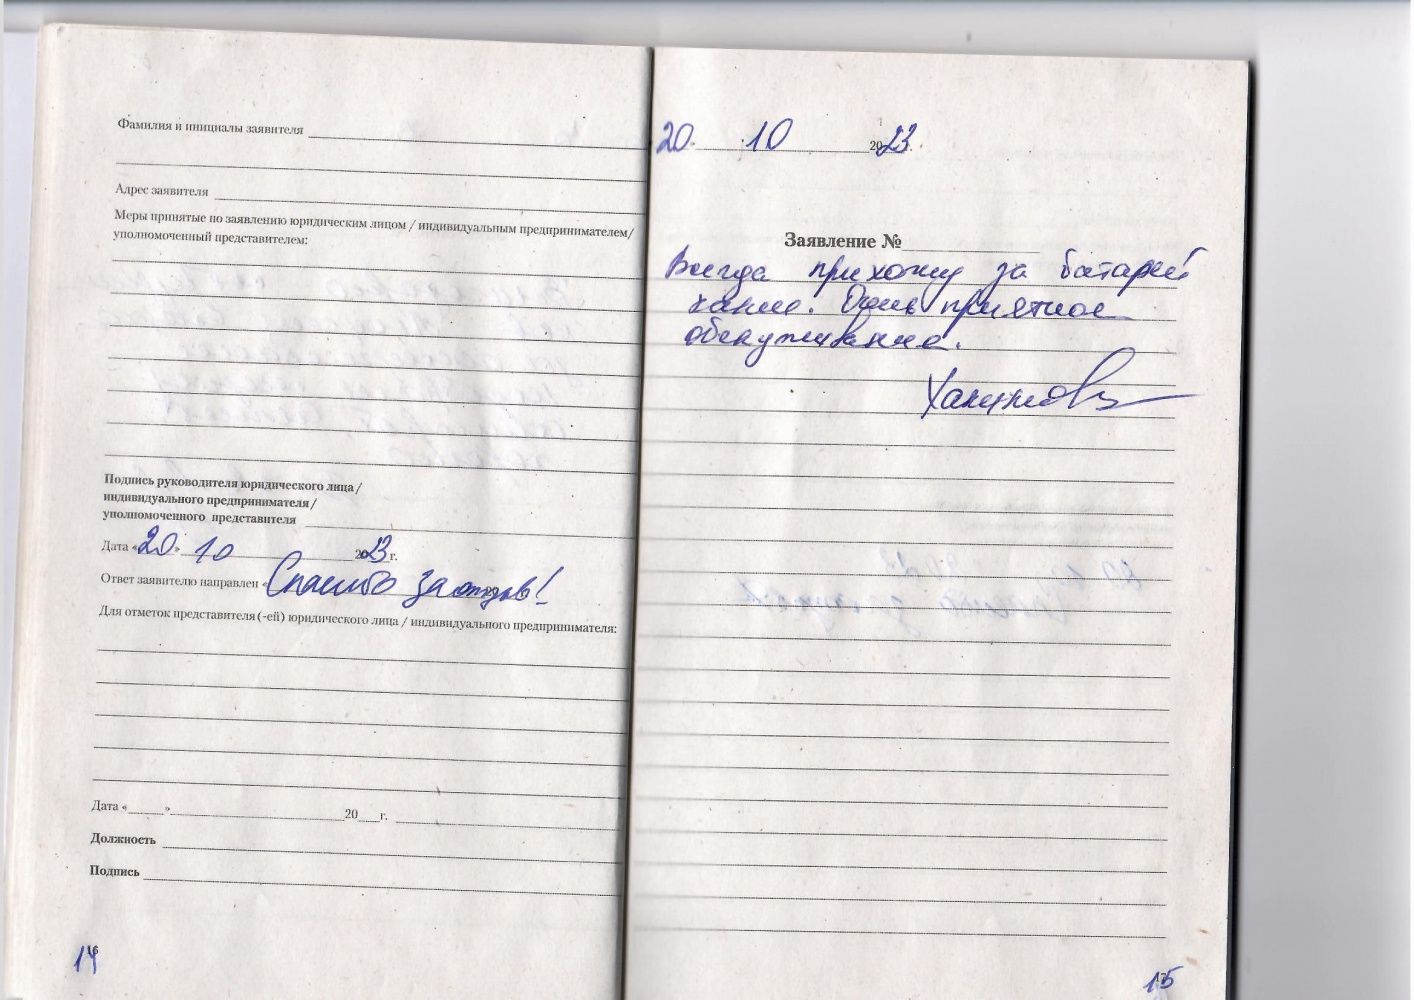 Фамилия и инициалы заявителя
Адрес заявителя
Меры принятые по заявлению юридическим лицом / индивидуальным предпринимателем/
уполномоченный представителем:
Подпись руководителя юридического лица /
индивидуального предпринимателя /
уполномоченного представителя
Дата «20» 10 2023 г.
Ответ заявителю направлен « Спасибо за отзыв!
Для отметок представителя (-ей) юридического лица / индивидуального предпринимателя:
Дата «____»____ 20__г.
Должность
Подпись
14
20 10 2023
Заявление №
Всегда прихожу за батарей
ками. Очень приятное
обслуживание.
15